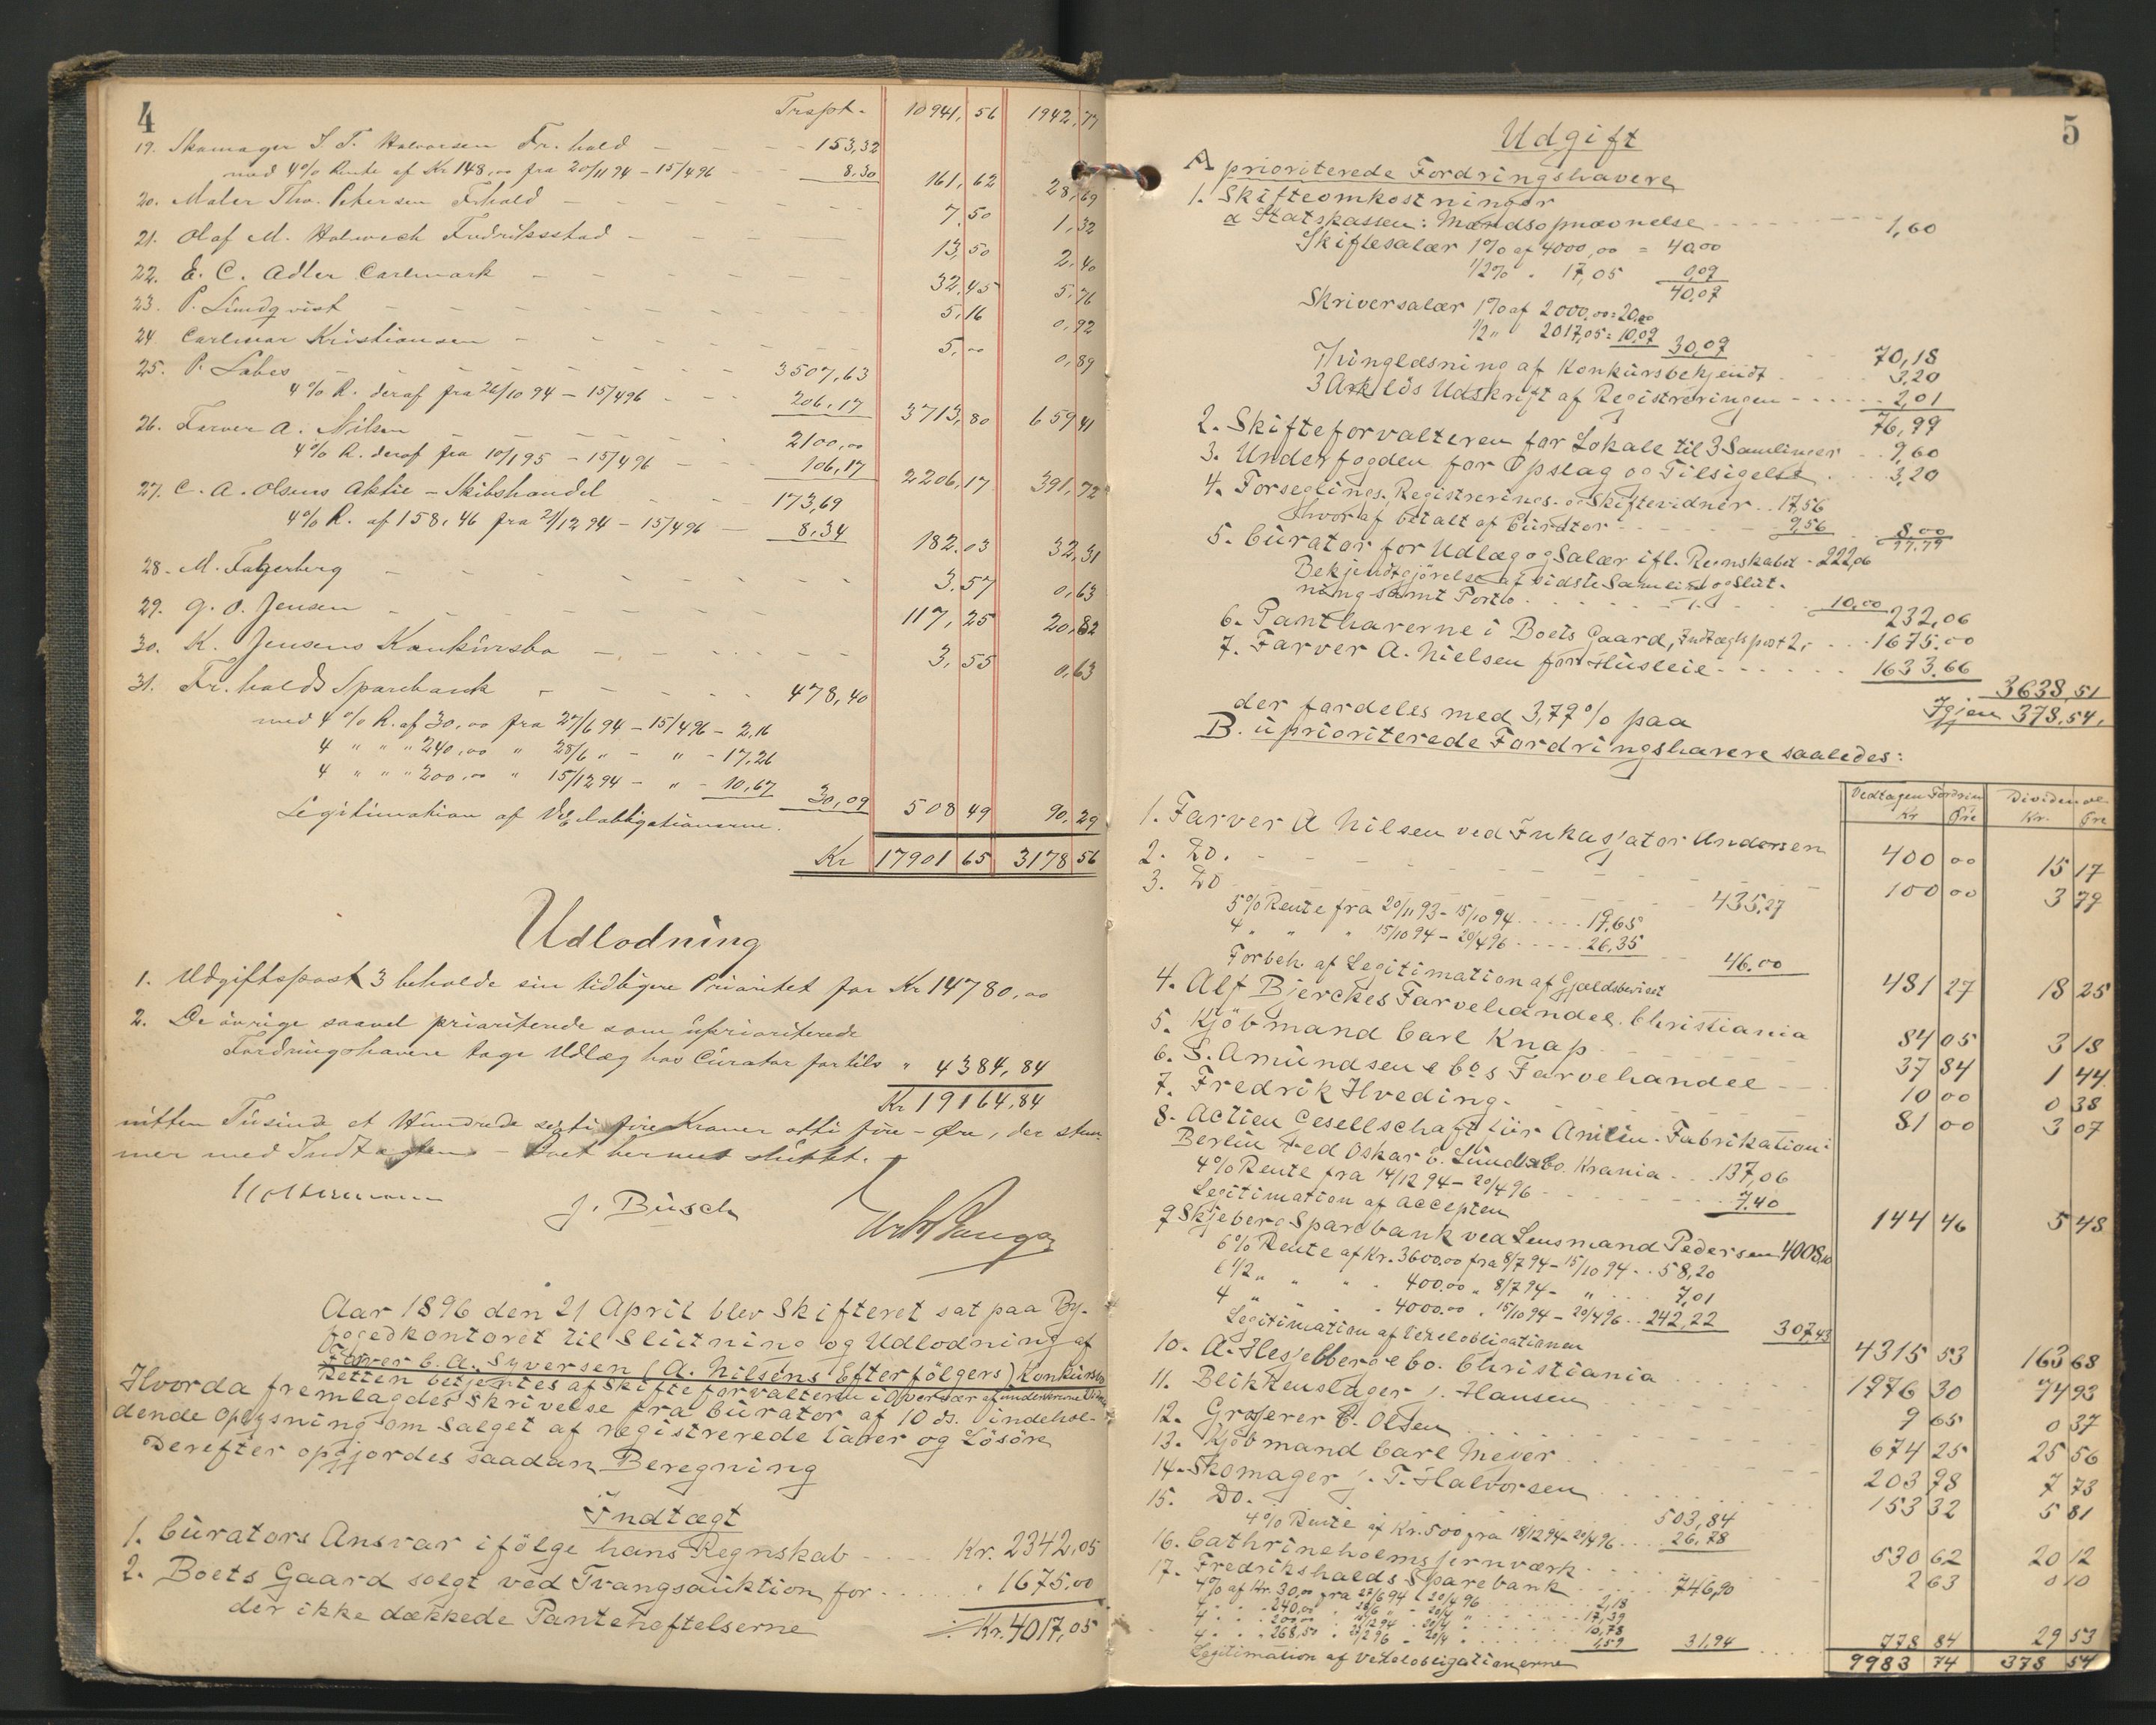 4
Trspt. 10941,56 1942,77
19. Skomager J. T. Halvorsen Fr.hald - - - 153,32
med 4% Rente af Kr 148,00 fra 20/11 94 - 15/4 96 - - 8.30 161,62 28,69
20. Maler Tho. Petersen Frhald - - - 7,50 1,32
21. Olaf M. Holwech Fredriksstad - - - 13,50 2,40
22. E. C. Adler Carlmark - - - 32,45 5,76
23. P. Lundqvist - - - 5,16 0,92
24. Carlmar Kristiansen - - - 5,00 0,89
25. P. Labes - - - 3507,63
4% R. deraf fra 26/10 94 - 15/4 96 - - 206,17 3713,80 659 41
26. Farver A. Nilsen - - - 2100,00
4% R. deraf fra 10/1 95 - 15/4 96 - - 106,17 2206,17 391,72
27. C. A. Olsens Aktie-Skibshandel - - 173,69
4% R. af 158,46 fra 21/12 94 - 15/4 96 - 8,34 182,03 32,31
28. M. Falgerberg - - - 3,57 0,63
29. G. O. Jensen - - - 117,25 20,82
30. K. Jensens Konkursbo - - - 3,55 0,63
31. Fr.halds Sparebank - - - 478,40
med 4% R. af 30,00 fra 27/6 94 - 15/4 96 - 2,16
4 " " " 240,00 " 28/6 " - " - 17,26
4 " " " 200,00 " 15/12 94 - " - 10,67 30,09 508 49 90,29
Legitimation af Vexelobligationerne.
Kr 17901 65 3178 56
Udlodning
1. Udgiftspost 3 beholde sin tidligere Prioritet for Kr 14780,00
2. De øvrige saavel prioriterede som uprioriterede
Fordringshavere tage Udlæg hos Curator fortils " 4384,84
Kr 19164,84
nitten Tusind et Hundrede sexti fire Kroner otti fire - Øre, der stem-
mer med Indtægten - Boet hermed sluttet.
J. Busch
Aar 1896 den 21 April blev Skifteret sat paa By-
fogedkontoret til Slutning og Udlodning af
Farver C. A. Syversen (A. Nilsens Efterfölgers) Konkursbo
Retten betjentes af Skifteforvalteren i Overvær af undertegnede Vidner
Hvorda fremlagdes Skrivelse fra Curator af 10 ds. indehol-
dende Oplysning om Salget af registrerede Varer og Lösöre
Derefter opgjordes saadan Beregning
Indtægt
1. Curators Ansvar ifölge hans Regnskab - - - Kr. 2342,05
2. Boets Gaard solgt ved Tvangsauktion for - - - " 1675,00
der ikke dækkede Pantehæftelserne Kr. 4017,05
5
Udgift
A prioriterede Fordringshavere
1. Skifteomkostninger
a Statskassen: Mændsopnævnelse - - - 1,60
Skiftesalær 1% af 4000,00 = 40,00
1/2% " 17,05 0,09
40,09
Skriversalær 1% af 2000,00 = 20,00
1/2 " 2017,05 = 10,09 30,09 70,18
Thinglæsning af Konkursbekjendt - - - 3,20
3 Ark lös Udskrift af Registreringen - - - 2,01
76,99
2. Skifteforvalteren for Lokale til 3 Samlinger - - 9,60
3. Underfogden for Opslag og Tilsigelse - - - 3,20
4. Forseglings, Registrerings- og Skiftevidner - - 17,56
Hvoraf betalt af Curator - - - 9,56 8,00
97.79
5. Curator for Udlæg og Salær ifl. Regnskabet - 222,06
Bekjendtgjörelse af sidste Samling og Slut-
ning samt Porto - - - 10,00 232,06
6. Panthaverne i Boets Gaard, Indtægtspost 2, - - - 1675,00
7. Farver A. Nielsen for Husleie - - - 1633,66
3638,51
Igjen 378,54,
der fordeles med 3,79% paa
B. uprioriterede Fordringshavere saaledes:
Vedtagen Fordrin Dividende
Kr Øre Kr. Øre
1. Farver A Nilsen ved Inkassator Andersen 400 00 15 17
2. Do. - - - 100 00 3 79
3. Do - - - 435,27
5% Rente fra 20/11 93 - 15/10 94 - - - 19,65
4 " " " 15/10 94 - 20/4 96 - - - 26,35 46,00
Forbeh. af Legitimation af Gjældsbeviset 481 27 18 25
4. Alf Bjerckes Farvehandel. Christiania 84 05 3 18
5. Kjöbmand Carl Knap - - - 37 84 1 44
6. S. Amundsen & Cos Farvehandel - - - 10 00 0 38
7. Fredrik Hveding - - - 81 00 3 07
8. Actien Gesellschaft für Anilin-Fabrikation i
Berlin ved Oskar C. Lund & Co. Krania - - 137,06
4% Rente fra 14/12 94 - 20/4 96 - - - 7,40
Legitimation af Accepten 144 46 5 48
9 Skjeberg Sparebank ved Lensmand Pedersen 4008,10
6% Rente af Kr. 3600,00 fra 8/7 94 - 15/10 94 - - 58,20
6 1/2 " " " " 400,00 " 8/7 94 - " - - - 7,01
4 " " 4000,00 " 15/10 94 - 20/4 96 - - 242,22 307,43
Legitimation af Vexelobligationen 4315 53 163 68
10. A. Hesselberg & Co. Christiania - - - 1976 30 74 93
11. Blikkenslager J. Hansen - - - 9 65 0 37
12. Grosserer C. Olsen - - - 674 25 25 56
13. Kjöbmand Carl Meyer - - - 203 98 7 73
14. Skomager J. T. Halvorsen - - - 153 32 5 81
15. Do. - - - 503,84
4% Rente af Kr. 500 fra 18/12 94 - 20/4 96 - - 26,78 530 62 20 12
16. Cathrineholms Jernværk - - - 2 63 0 10
17. Fredrikshalds Sparebank - - - 746,90
4% af Kr. 30,00 fra 27/6 94 - 20/4 96 - - - 2,18
4 " " 240,00 " 28/6 " - 20/4 " - - - 17,39
4 " " 200,00 " 15/12 94 - 20/4 " - - - 10,78
4 " " 268,50 " 2/2 96 - 20/4 " - - - 1,59 31,94
Legitimation af Vexelobligationerne 778 84 29 53
9983 74 378 54